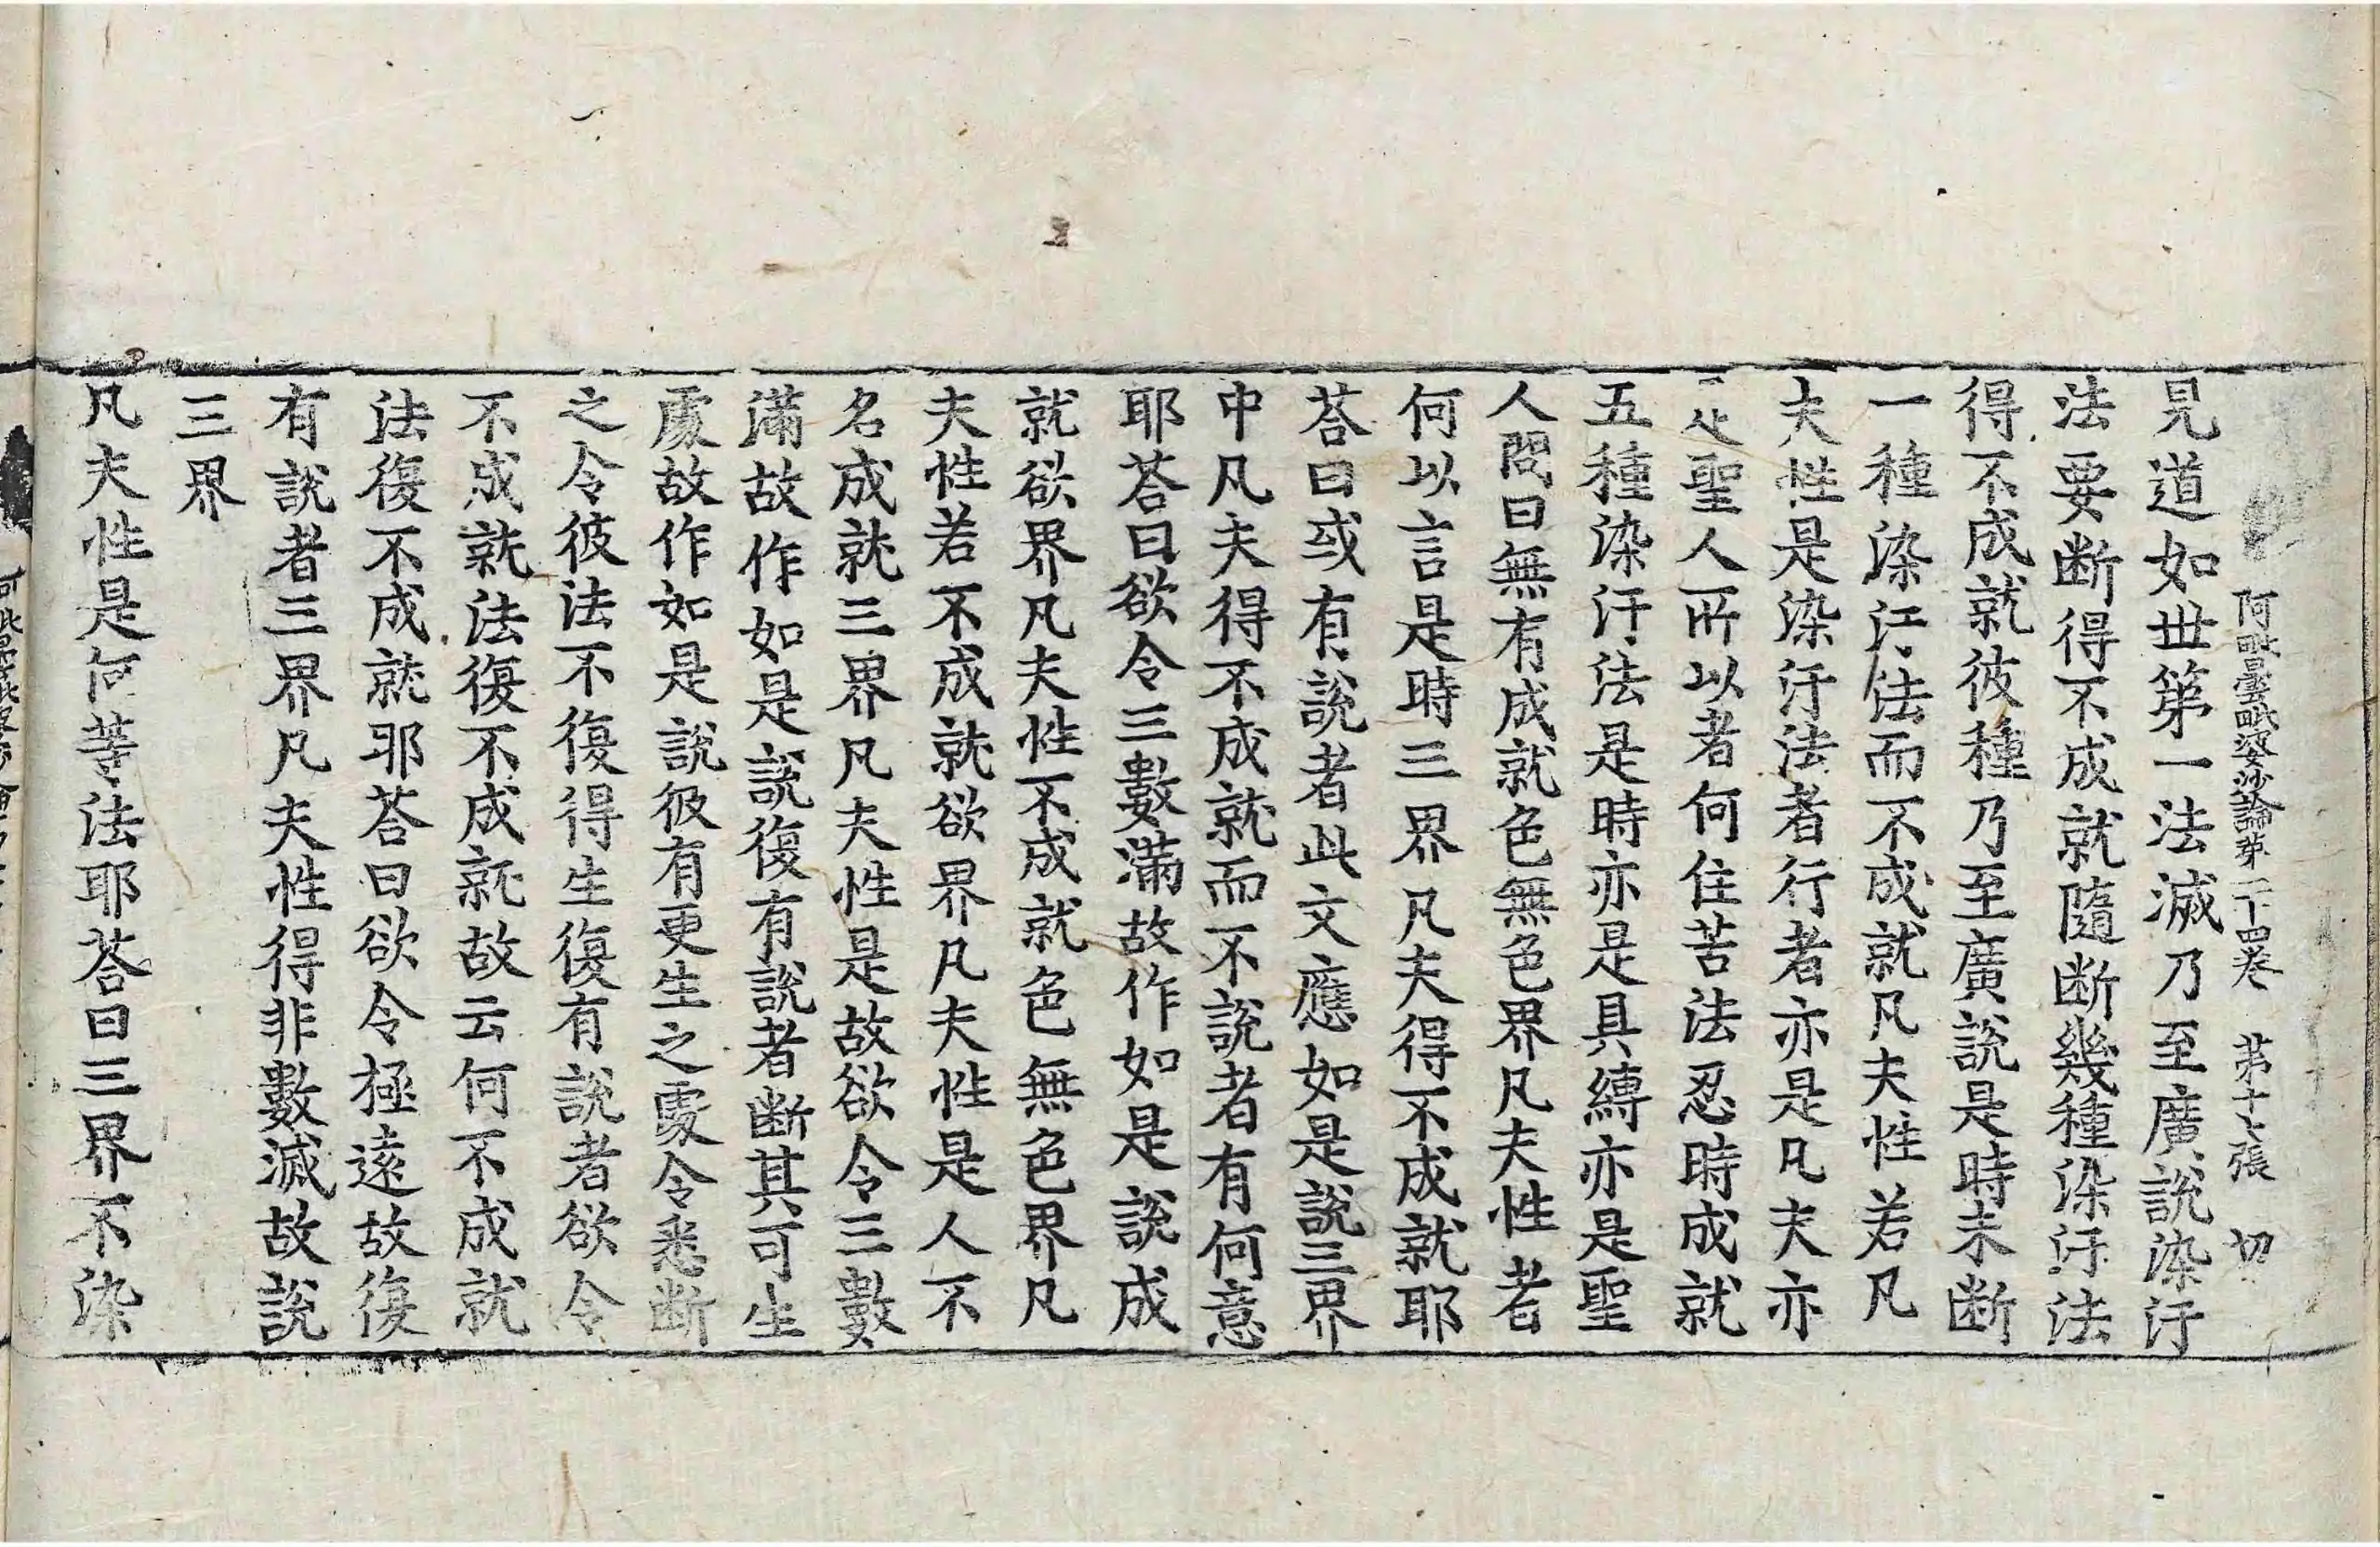 阿毗曇毗婆沙論第二十四卷 第十七張 切
見道如世第一法滅乃至廣說染汙
法要断得不成就隨断幾種染汙法
得不成就彼種乃至廣說是時未断
一種染汙法而不成就凡夫性若凡
夫性是染汙法者行者亦是凡夫亦
是聖人所以者何住苦法忍時成就
五種染汙法是時亦是具縛亦是聖
人問曰無有成就色無色界凡夫性者
何以言是時三界凡夫得不成就耶
荅曰或有說者此文應如是說三界
中凡夫得不成就而不說者有何意
耶荅曰欲令三數滿故作如是說成
就欲界凡夫性不成就色無色界凡
夫性若不成就欲界凡夫性是人不
名成就三界凡夫性是故欲令三數
滿故作如是說復有說者断其可生
處故作如是說彼有更生之處令悉断
之令彼法不復得生復有說者欲令
不成就法復不成就故云何不成就
法復不成就耶荅曰欲令極遠故復
有說者三界凡夫性得非數滅故說
三界
凡夫性是何等法耶荅曰三界不染